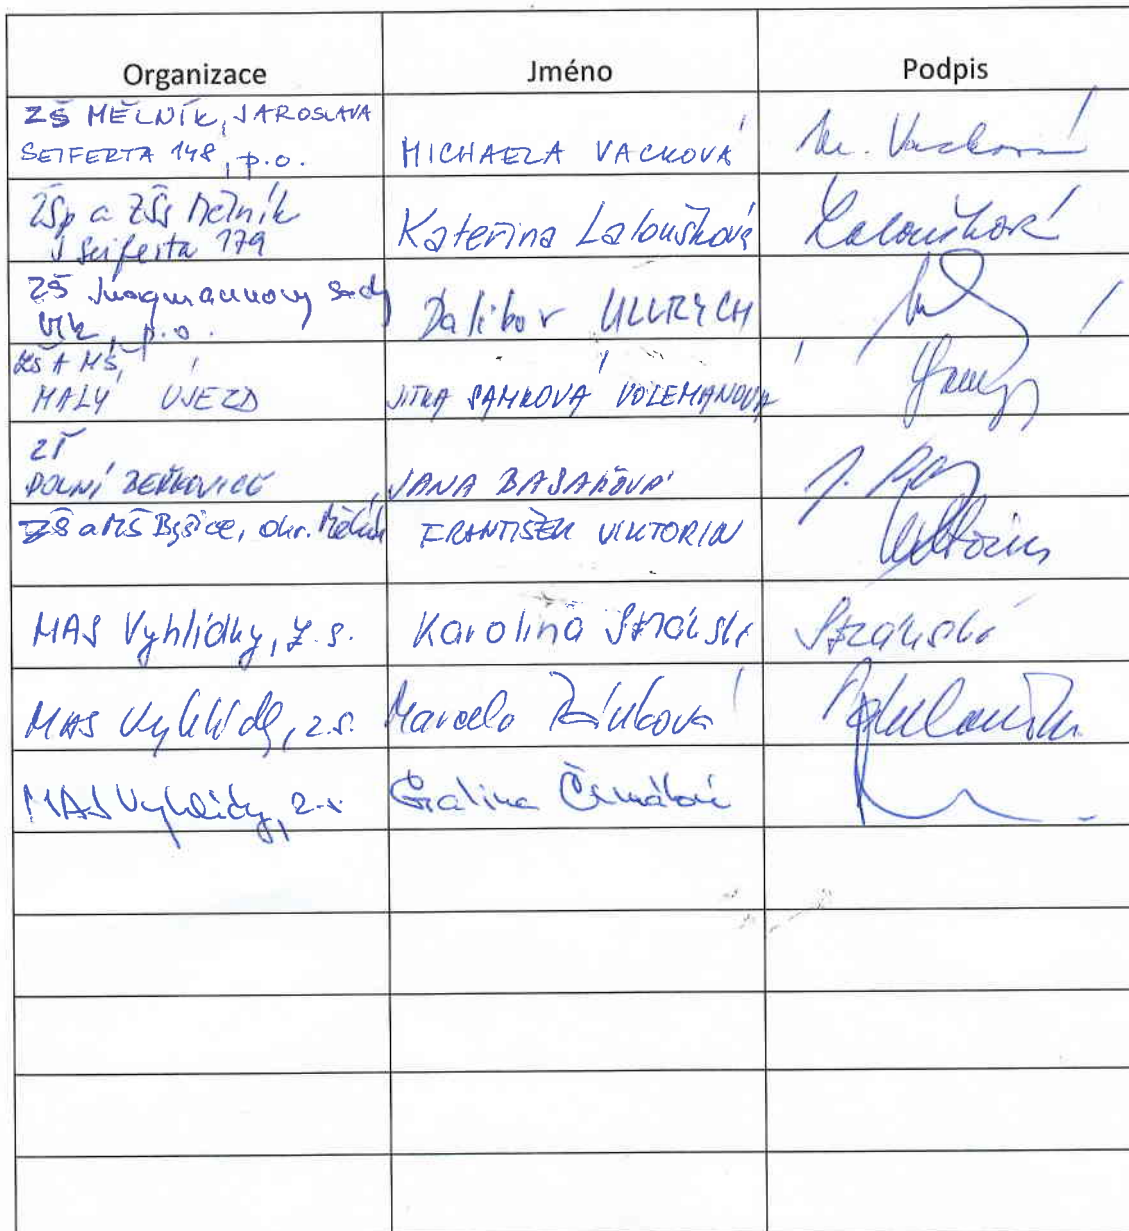 Organizace Jméno Podpis
ZŠ MĚLNÍK, JAROSLAVA
SEIFERTA 148, p.o. MICHAELA VACKOVÁ M. Vacková
ZŠp a ZŠs Mělník
J Seiferta 179 Kateřina Laloušková Laloušková
ZŠ Jungmannovy sady
Mělník, p.o. Dalibor ULLRYCH
ZŠ A MŠ,
MALÝ ÚJEZD JITKA SAMKOVÁ VOLEMANOVÁ
ZŠ
DOLNÍ BEŘKOVICE JANA BASAŘOVÁ
ZŠ a MŠ Byšice, okr. Mělník FRANTIŠEK VIKTORIN Viktorin
MAS Vyhlídky, z.s. Karolína Stránská Stránská
MAS Vyhlídky, z.s. Marcela
MAS Vyhlídky, z.s. Galina Čermáková